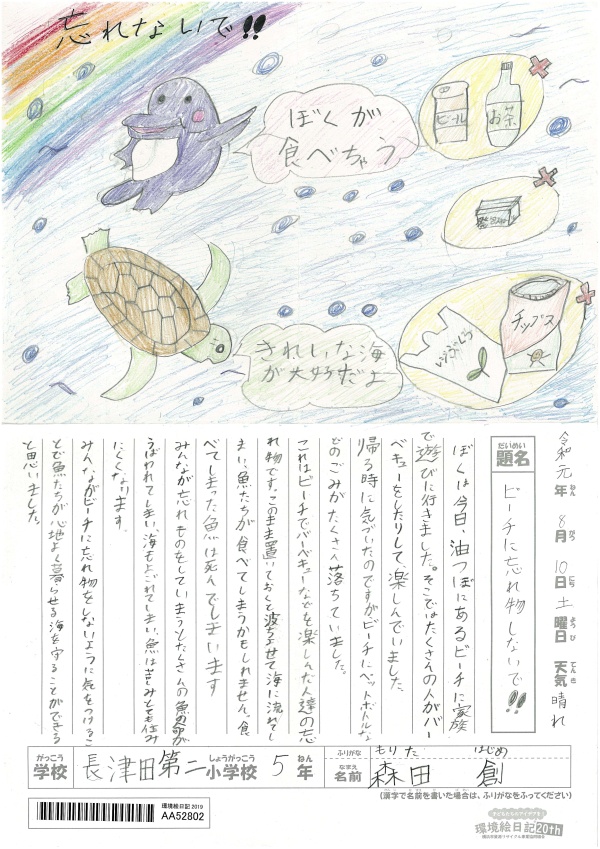 忘れないで!!
ぼくが
食べちゃう
ビール
お茶
きれいな海
が大好だよ
レジぶくろ
チップス
令和元年 8月10日 土曜日 天気 晴れ
ねん がつ にち ようび てんき
だいめい
題名
ビーチに忘れ物しないで!!
ぼくは今日、油つぼにあるビーチに家族
で遊びに行きました。そこではたくさんの人がバー
ベキューをしたりして、楽しんでいました。
帰る時に気づいたのですがビーチにペットボトルな
どのごみがたくさん落ちていました。
これはビーチでバーベキューなどを楽しんだ人達の忘
れ物です。このまま置いておくと波ちよせて海に流れてし
まい、魚たちが食べてしまうかもしれません。食
べてしまった魚は死んでしまいます
みんなが忘れものをしてしまうとたくさんの魚の命が
うばわれてしまい、海もよごれてしまい、魚は苦しみとても住み
にくくなります。
みんながビーチに忘れ物をしないように気をつけるこ
とで魚たちが心地よく暮らせる海を守ることができる
と思いました。
がっこう
学校
長津田第二小学校 5年
しょうがっこう ねん
ふりがな
もりた はじめ
なまえ
名前
森田 創
(漢字で名前を書いた場合は、ふりがなをふってください)
環境絵日記2019
AA52802
環境絵日記20th